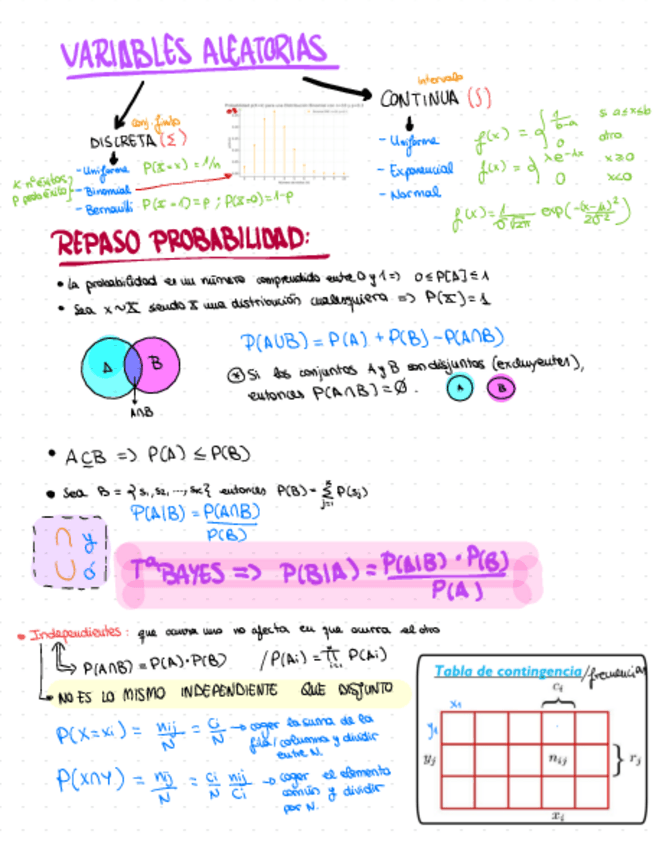 VARIABLES ALEATORIAS
intervalo
CONTINUA (∫)
conj. finito
DISCRETA (Σ)
- Uniforme P(X=x) = 1/n
K nº éxitos
P prob éxito
- Binomial
- Bernouilli P(X=1)=p ; P(X=0)=1-p
- Uniforme f(x) = { 1/(b-a) si a≤x≤b
0 otro
- Exponencial f(x) = { λe^-λx x≥0
0 x<0
- Normal
f(x) = 1/(σ√2π) exp(-(x-μ)²/2σ²)
REPASO PROBABILIDAD:
• La probabilidad es un número comprendido entre 0 y 1 => 0 ≤ P[A] ≤ 1
• Sea x~X siendo X una distribución cualesquiera => P(X)=1
P(A∪B) = P(A) + P(B) - P(A∩B)
A B
A∩B
* Si los conjuntos A y B son disjuntos (excluyentes),
entonces P(A∩B) = Ø. A B
• A⊆B => P(A) ≤ P(B)
• Sea B = {s1, s2, ..., sk} entonces P(B) = Σ P(sj)
j=1
P(A|B) = P(A∩B)/P(B)
∩ y
∪ ó
Tª BAYES => P(B|A) = P(A|B) · P(B) / P(A)
• Independientes: que ocurra uno no afecta en que ocurra el otro
P(A∩B) = P(A)·P(B) / P(Ai) = ∏ P(Ai)
NO ES LO MISMO INDEPENDIENTE QUE DISJUNTO
P(X=xi) = nij/N = ci/N → coger la suma de la
fila/columna y dividir
entre N.
P(X∩Y) = nij/N = ci/N nij/ci → coger el elemento
común y dividir
por N.
Tabla de contingencia/frecuencias
ci
x1
y1
yj nij rj
xi